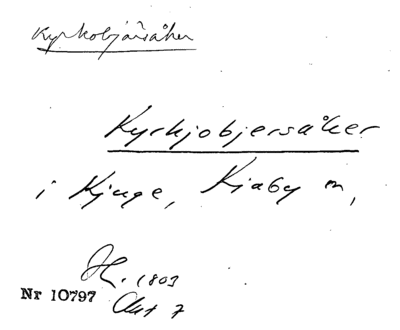 Kyrkobjärsåker
Kyrkjobjersåker
i Kjuge, Kiaby sn,
H. 1803
Nr 10797
Akt 7